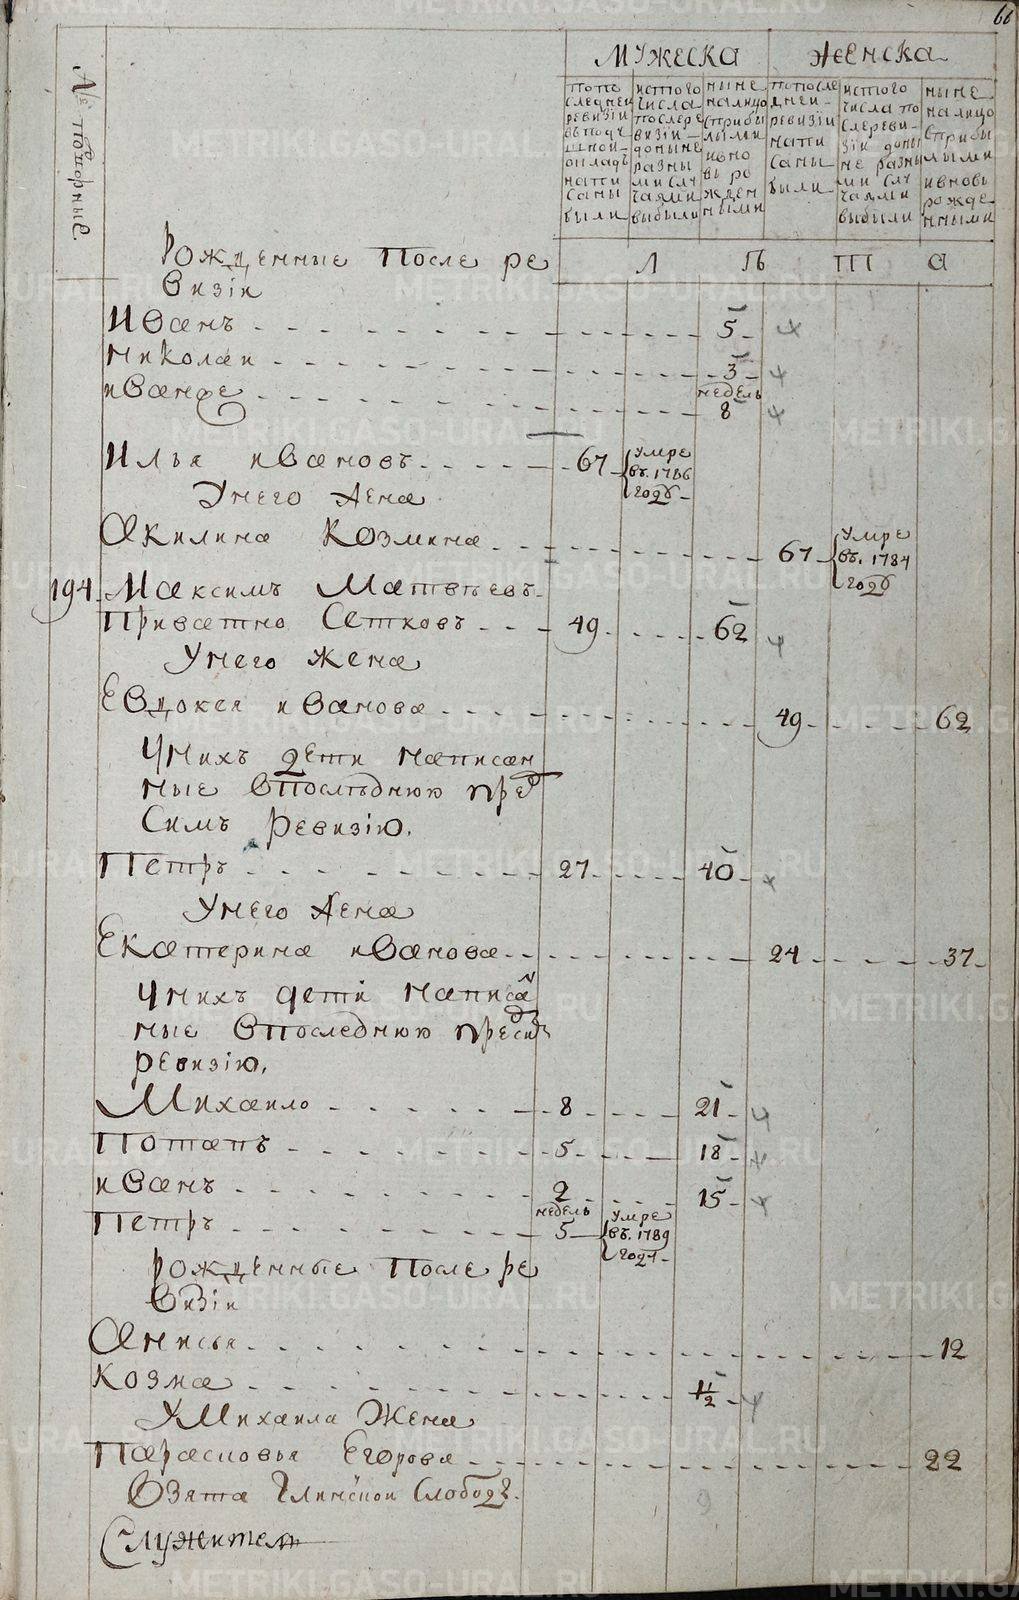 66
№ подворные
Мужеска
Женска
попо
следней
ревизіи
въ подъ
шной
окладъ
напи
саны
были
истого
числа
послере
визіи
доныне
разны
ми слу
чаями
выбыли
ныне
налицо
сприбы
лыми
ивно
вь ро
жден
ными
попосле
дней
ревизіи
напи
саны
были
истого
числа по
слереви
зіи доны
не разны
ми слу
чаями
выбыли
ныне
налицо
сприбы
лыми
ивновь
рожде
нными
Рожденные после ре
Л Ѣ Т А
визіи
Иванъ 5
Николаи 3
недель
иванже 8
Илья ивановъ 67 умре
въ. 1786
году
Унего жена
Акилина Козмина 67 умре
въ. 1784
году
194 Максимъ Матвѣевъ
Приватно Сетковъ 49 62
Унего жена
Евдокея иванова 49 62
Унихъ дети написан
ные впослѣднюю пред
симъ ревизію.
Петръ 27 40
Унего жена
Екатерина иванова 24 37
Унихъ дети написан
ные впоследнюю предсимъ
ревизію.
Михаило 8 21
Потапъ 5 18
иванъ 2 15
недель
Петръ 5 умре
въ. 1789
году
Рожденные после ре
визіи
Анисья 12
Козма 1/2
УМихаила Жена
Парасковья Егорова 22
Взята Глинской Слободѣ.
Служител
METRIKI.GASO-URAL.RU